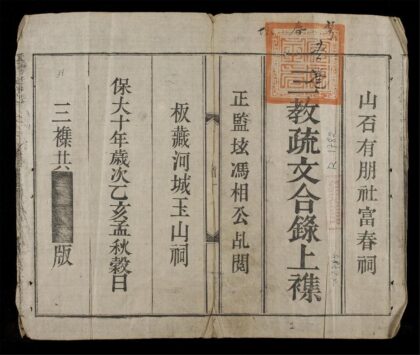 山石有朋社富春祠
三教疏文合錄上襍
正監馮相公乩閱
板藏河城玉山祠
保大十年歲次乙亥孟秋穀日
三襍共版